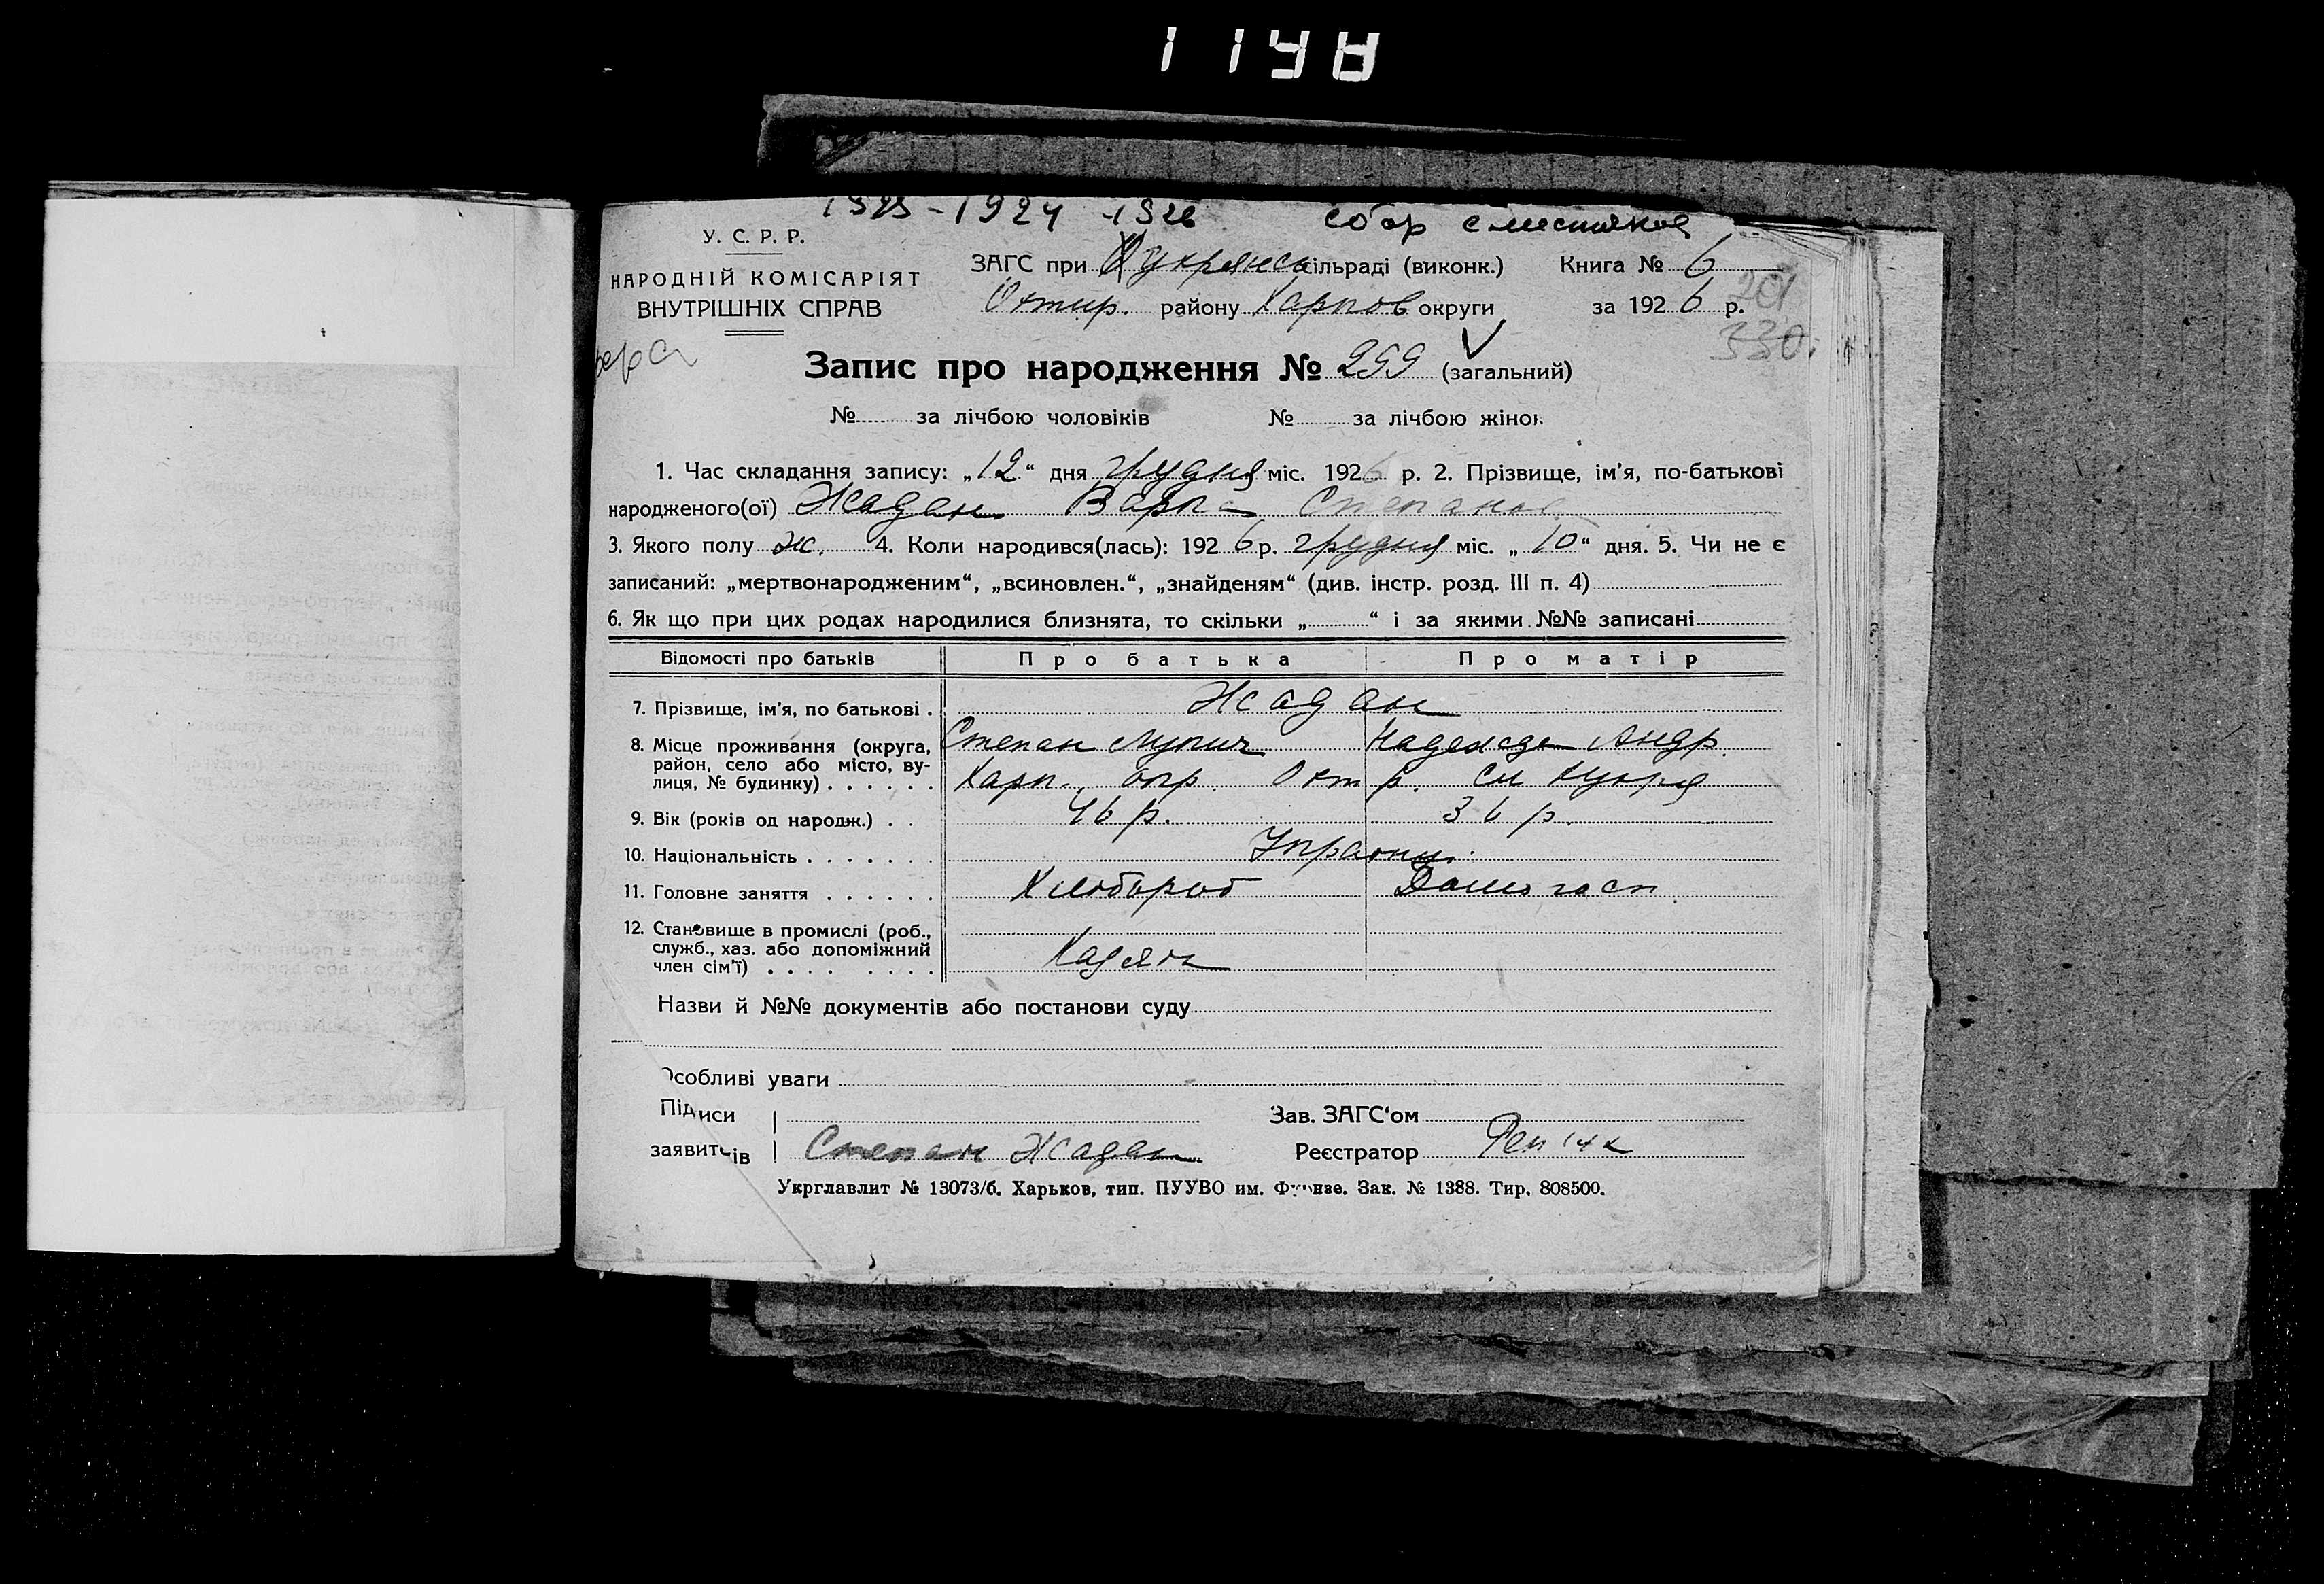 1158
1925-1924-1926
У. С. Р. Р.
НАРОДНІЙ КОМІСАРІЯТ
ВНУТРІШНІХ СПРАВ
ЗАГС при Кукрянсь сільраді (виконк.) Книга № 6
Охтир. району Харков округи за 1926 р.
330
Запис про народження № 299 (загальний)
№ за лічбою чоловіків № за лічбою жінок
1. Час складання запису: „12“ дня грудня міс. 1926 р. 2. Прізвище, ім’я, по-батькові
народженого(ої) Жадан Варка Степанов
3. Якого полу ж. 4. Коли народився(лась): 1926 р. грудня міс. „10“ дня. 5. Чи не є
записаний: „мертвонародженим“, „всиновлен.“, „знайденям“ (див. інстр. розд. III п. 4)
6. Як що при цих родах народилися близнята, то скільки „ “ і за якими №№ записані
Відомості про батьків Про батька Про матір
7. Прізвище, ім’я, по батькові . Жадан
Степан Лукич Надежда Андр.
8. Місце проживання (округа, район, село або місто, вулиця, № будинку) . . . . . . Харк. окр. Охт р. сл Кукря
9. Вік (років од народж.) . . 46 р. 36 р.
10. Національність . . . . . . . Украінц.
11. Головне заняття . . . . . . Хлібороб Домогосп
12. Становище в промислі (роб., служб., хаз. або допоміжний член сім’ї) . . . . . . . . Хазяін
Назви й №№ документів або постанови суду
Особливі уваги
Підписи заявитчів Степан Жадан
Зав. ЗАГС‘ом
Реєстратор
Укрглавлит № 13073/6. Харьков, тип. ПУУВО им. Фрунзе. Зак. № 1388. Тир. 808500.